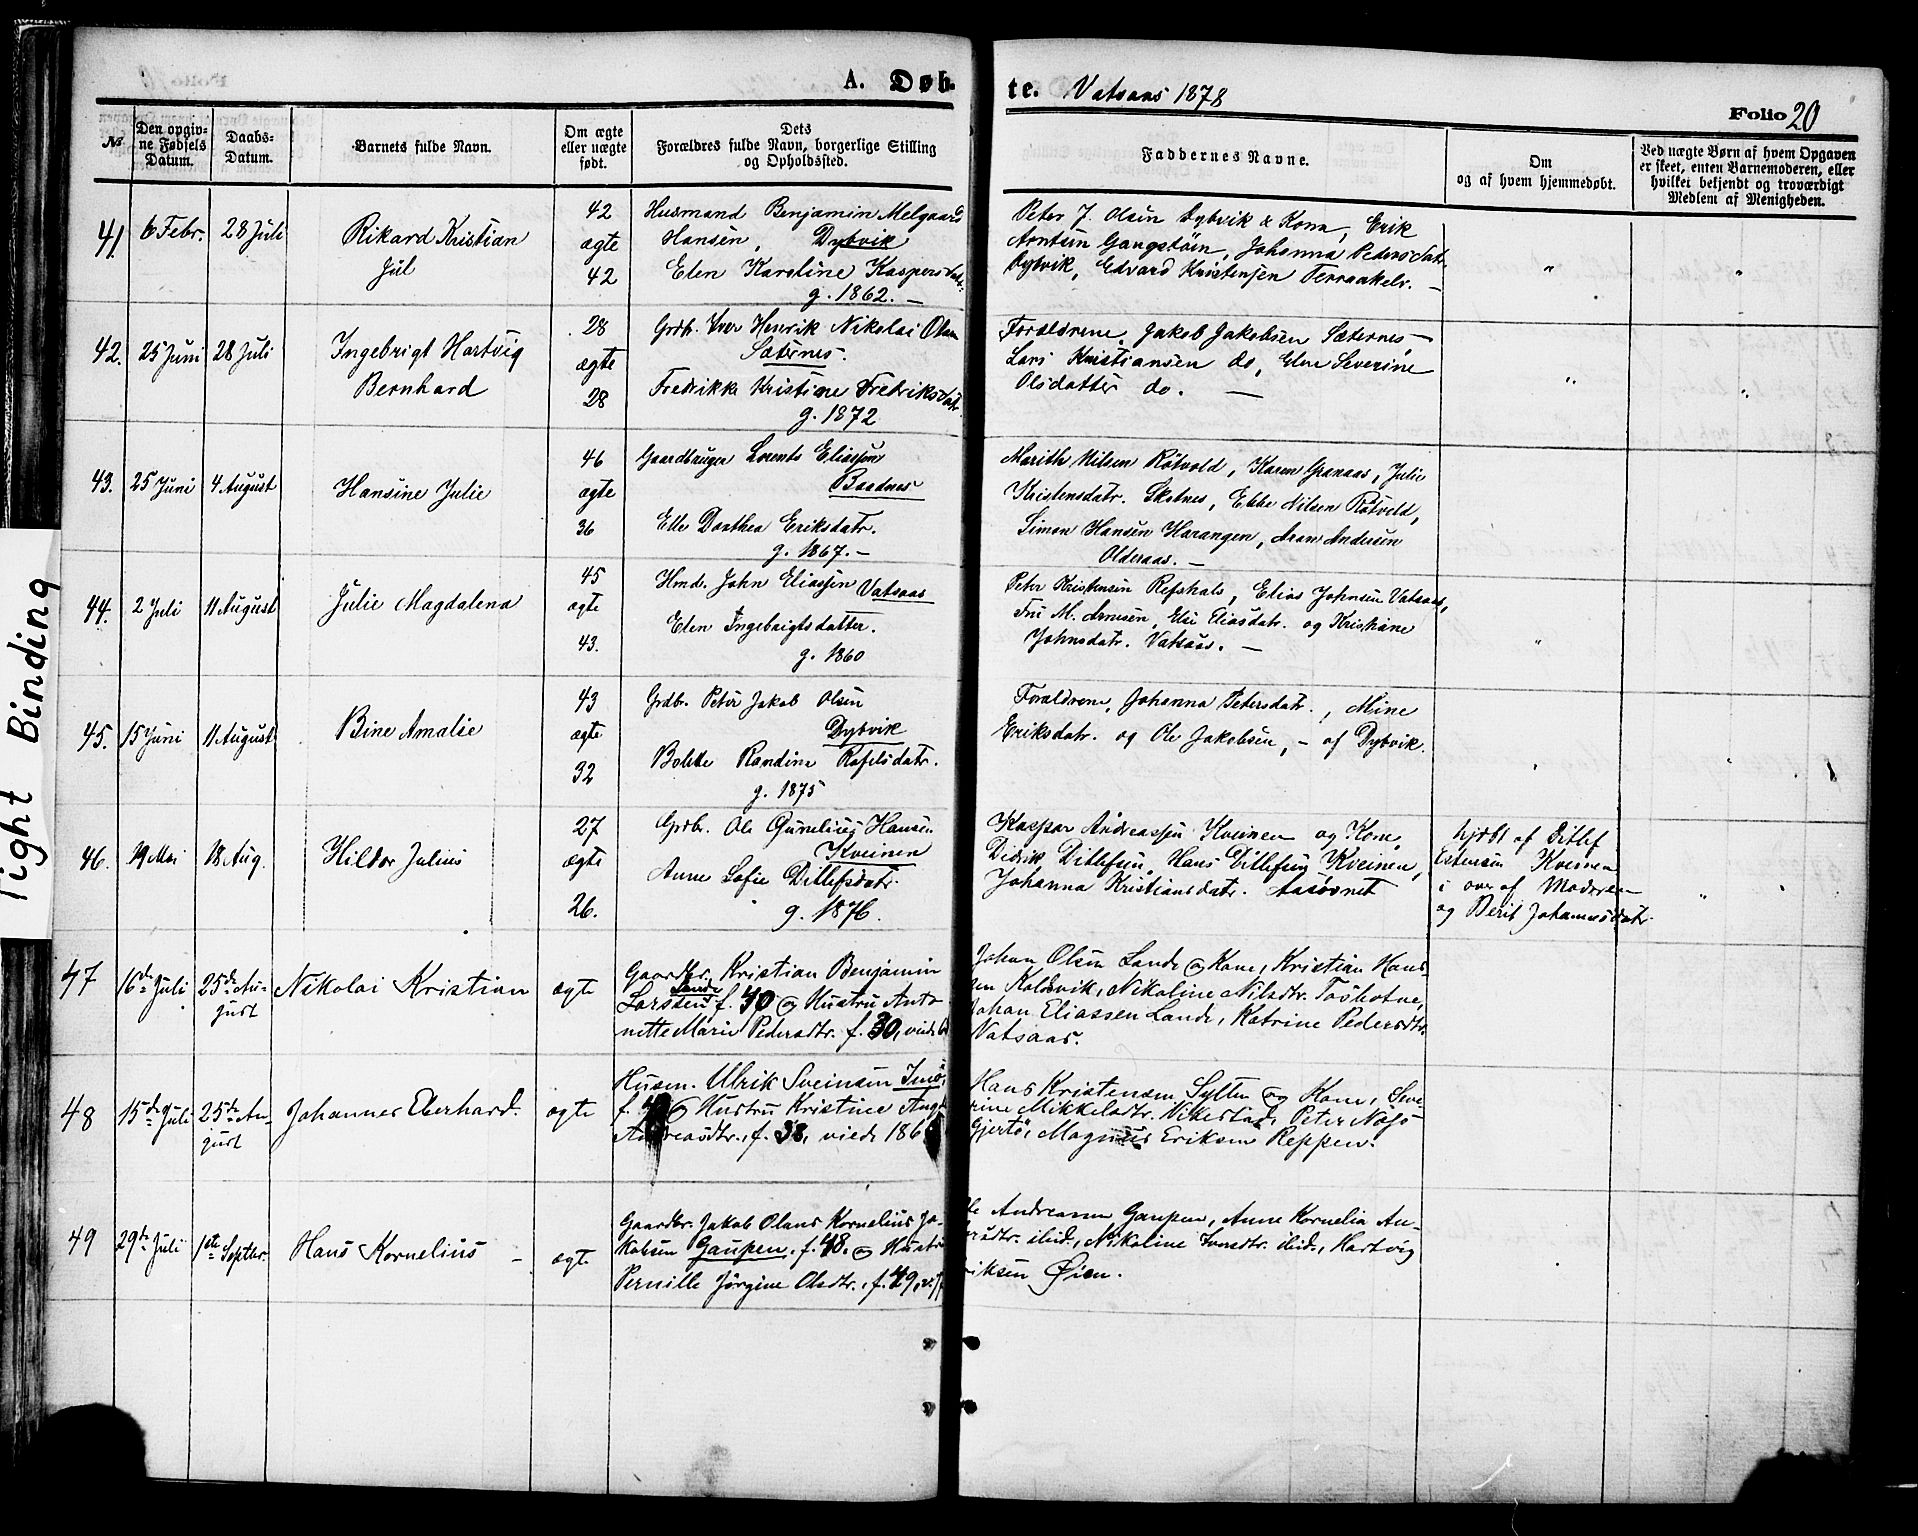 A. Døbte. Vatsaas 1878
Folio 20
№
Den opgivne Fødsels Datum.
Daabs-Datum.
Barnets fulde Navn.
Om ægte eller uægte født.
Dets Forældres fulde Navn, borgerlige Stilling og Opholdssted.
Faddernes Navne.
Om og af hvem hjemmedøbt.
Ved uægte Børn af hvem Opgaven er skeet, enten Barnemoderen, eller hvilket bekjendt og troværdigt Medlem af Menigheden.
41. 6 Febr. 28 Juli
Rikard Kristian
Jul
42
ægte
42
Husmand Benjamin Melgaard
Hansen, Dybvik
Elen Karoline Kaspersdatr.
g. 1862. –
Peter J. Olsen Dybvik & Kona, Erik
Arntsen Gangstöen, Johanna Pedersdatr.
Dybvik, Edvard Kristensen Terraakelv. –
42. 25 Juni 28 Juli
Ingebrigt Hartvig
Bernhard
28
ægte
28
Grdb. Iver Henrik Nikolai Olsen
Sæternes.
Fredrikke Kristine Fredriksdatr.
g. 1872
Forældrene, Jakob Jakobsen Sæternes –
Lars Kristiansen do, Elen Severine
Olsdatter do. –
43. 25 Juni 4 August
Hansine Julie
46
ægte
36
Gaardbruger Lorents Eliassen
Baadnes
Elle Dorthea Eriksdatr.
g. 1867. –
Marith Nilsen Rötvold, Karen Granaas, Julie
Kristensdatr. Skotnes, Ebbe Nilsen Rötvold,
Simon Hansen Harangen, Aron Andersen
Olderaas. –
44. 2 Juli 11 August
Julie Magdalena
45
ægte
43.
Hmd. John Eliassen Vatsaas
Elen Ingebrigtsdatter.
g. 1860
Peter Kristensen Refshals, Elias Johnsen Vatsaas,
Fru M. Arnesen, Elie Eliasdatr. og Kristiane
Johnsdatr. Vatsaas. –
45. 15 Juni 11 August
Bine Amalie
43
ægte
32
Grdbr. Peter Jakob Olsen
Dybvik
Bolette Randine Rafelsdatr.
g. 1875
Forældrene, Johanna Petersdatr., Mine
Eriksdatr. og Ole Jakobsen, – af Dybvik.
46. 19 Mai 18 Aug.
Hildor Julius
27
ægte
26.
Grdbr. Ole Cornelius Hansen
Kveinen
Anne Sofie Ditlefsdatr.
g. 1876.
Kaspar Andreassen Kveinen og Kone,
Didrik Ditlefsen, Hans Ditlefsen Kveinen,
Johanna Kristiansdatr. Aasövnet
hjdbt af Ditlef
Estensen Kveinen
i overv. af Moderen
og Berit Johannesdatr.
47 16de Juli 25de Au-
gust
Nikolai Kristian
ægte
Gaardbr. Kristian Benjamin
Larssen Lande f. 40 og Hustru Anto
nette Marie Pedersdtr. f. 30, viede
Johan Olsen Lande og Kone, Kristian Hans-
en Kolsvik, Nikoline Nilsdtr. Tosbotne,
Johan Eliassen Lande, Katrine Pedersdtr.
Vatsaas.
48 15de Juli 25de Au-
gust
Johannes Eberhard.
ægte
Husm. Ulrik Sveinsen Imö,
f. og Hustru Kristine Aug.
Andreasdtr., f. 38, viede 186
Hans Kristensen Sylten og Kone, Seve
rine Mikkelsdtr. Vikestad, Peter Nösö
Gjertö, Magnus Eriksen Reppen.
49 29de Juli 1ste Septbr.
Hans Kornelius –
ægte
Gaardbr. Jakob Olaus Kornelius Ja-
kobsen Gaupen, f. 48. og Hustru
Pernille Jörgine Olsdtr., f. 49,
Andreassen Gaupen, Anne Kornelia An-
ibid., Nikoline Iversdtr. ibid., Hartvig
Øien.
Tight Binding